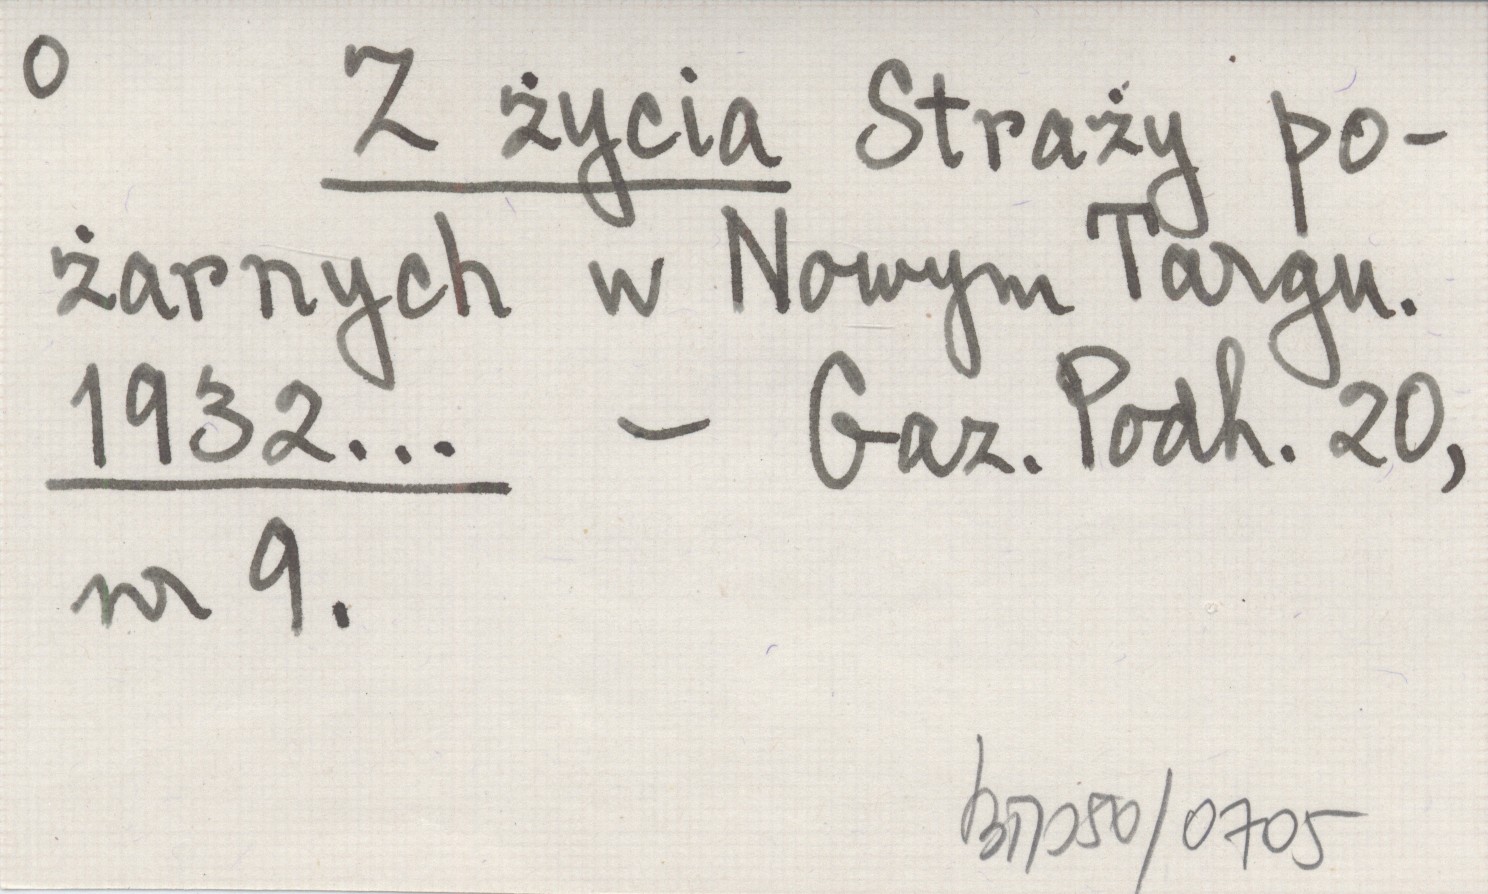 o Z życia Straży po-
żarnych w Nowym Targu.
1932... - Gaz. Podh. 20,
nr 9.
/0705